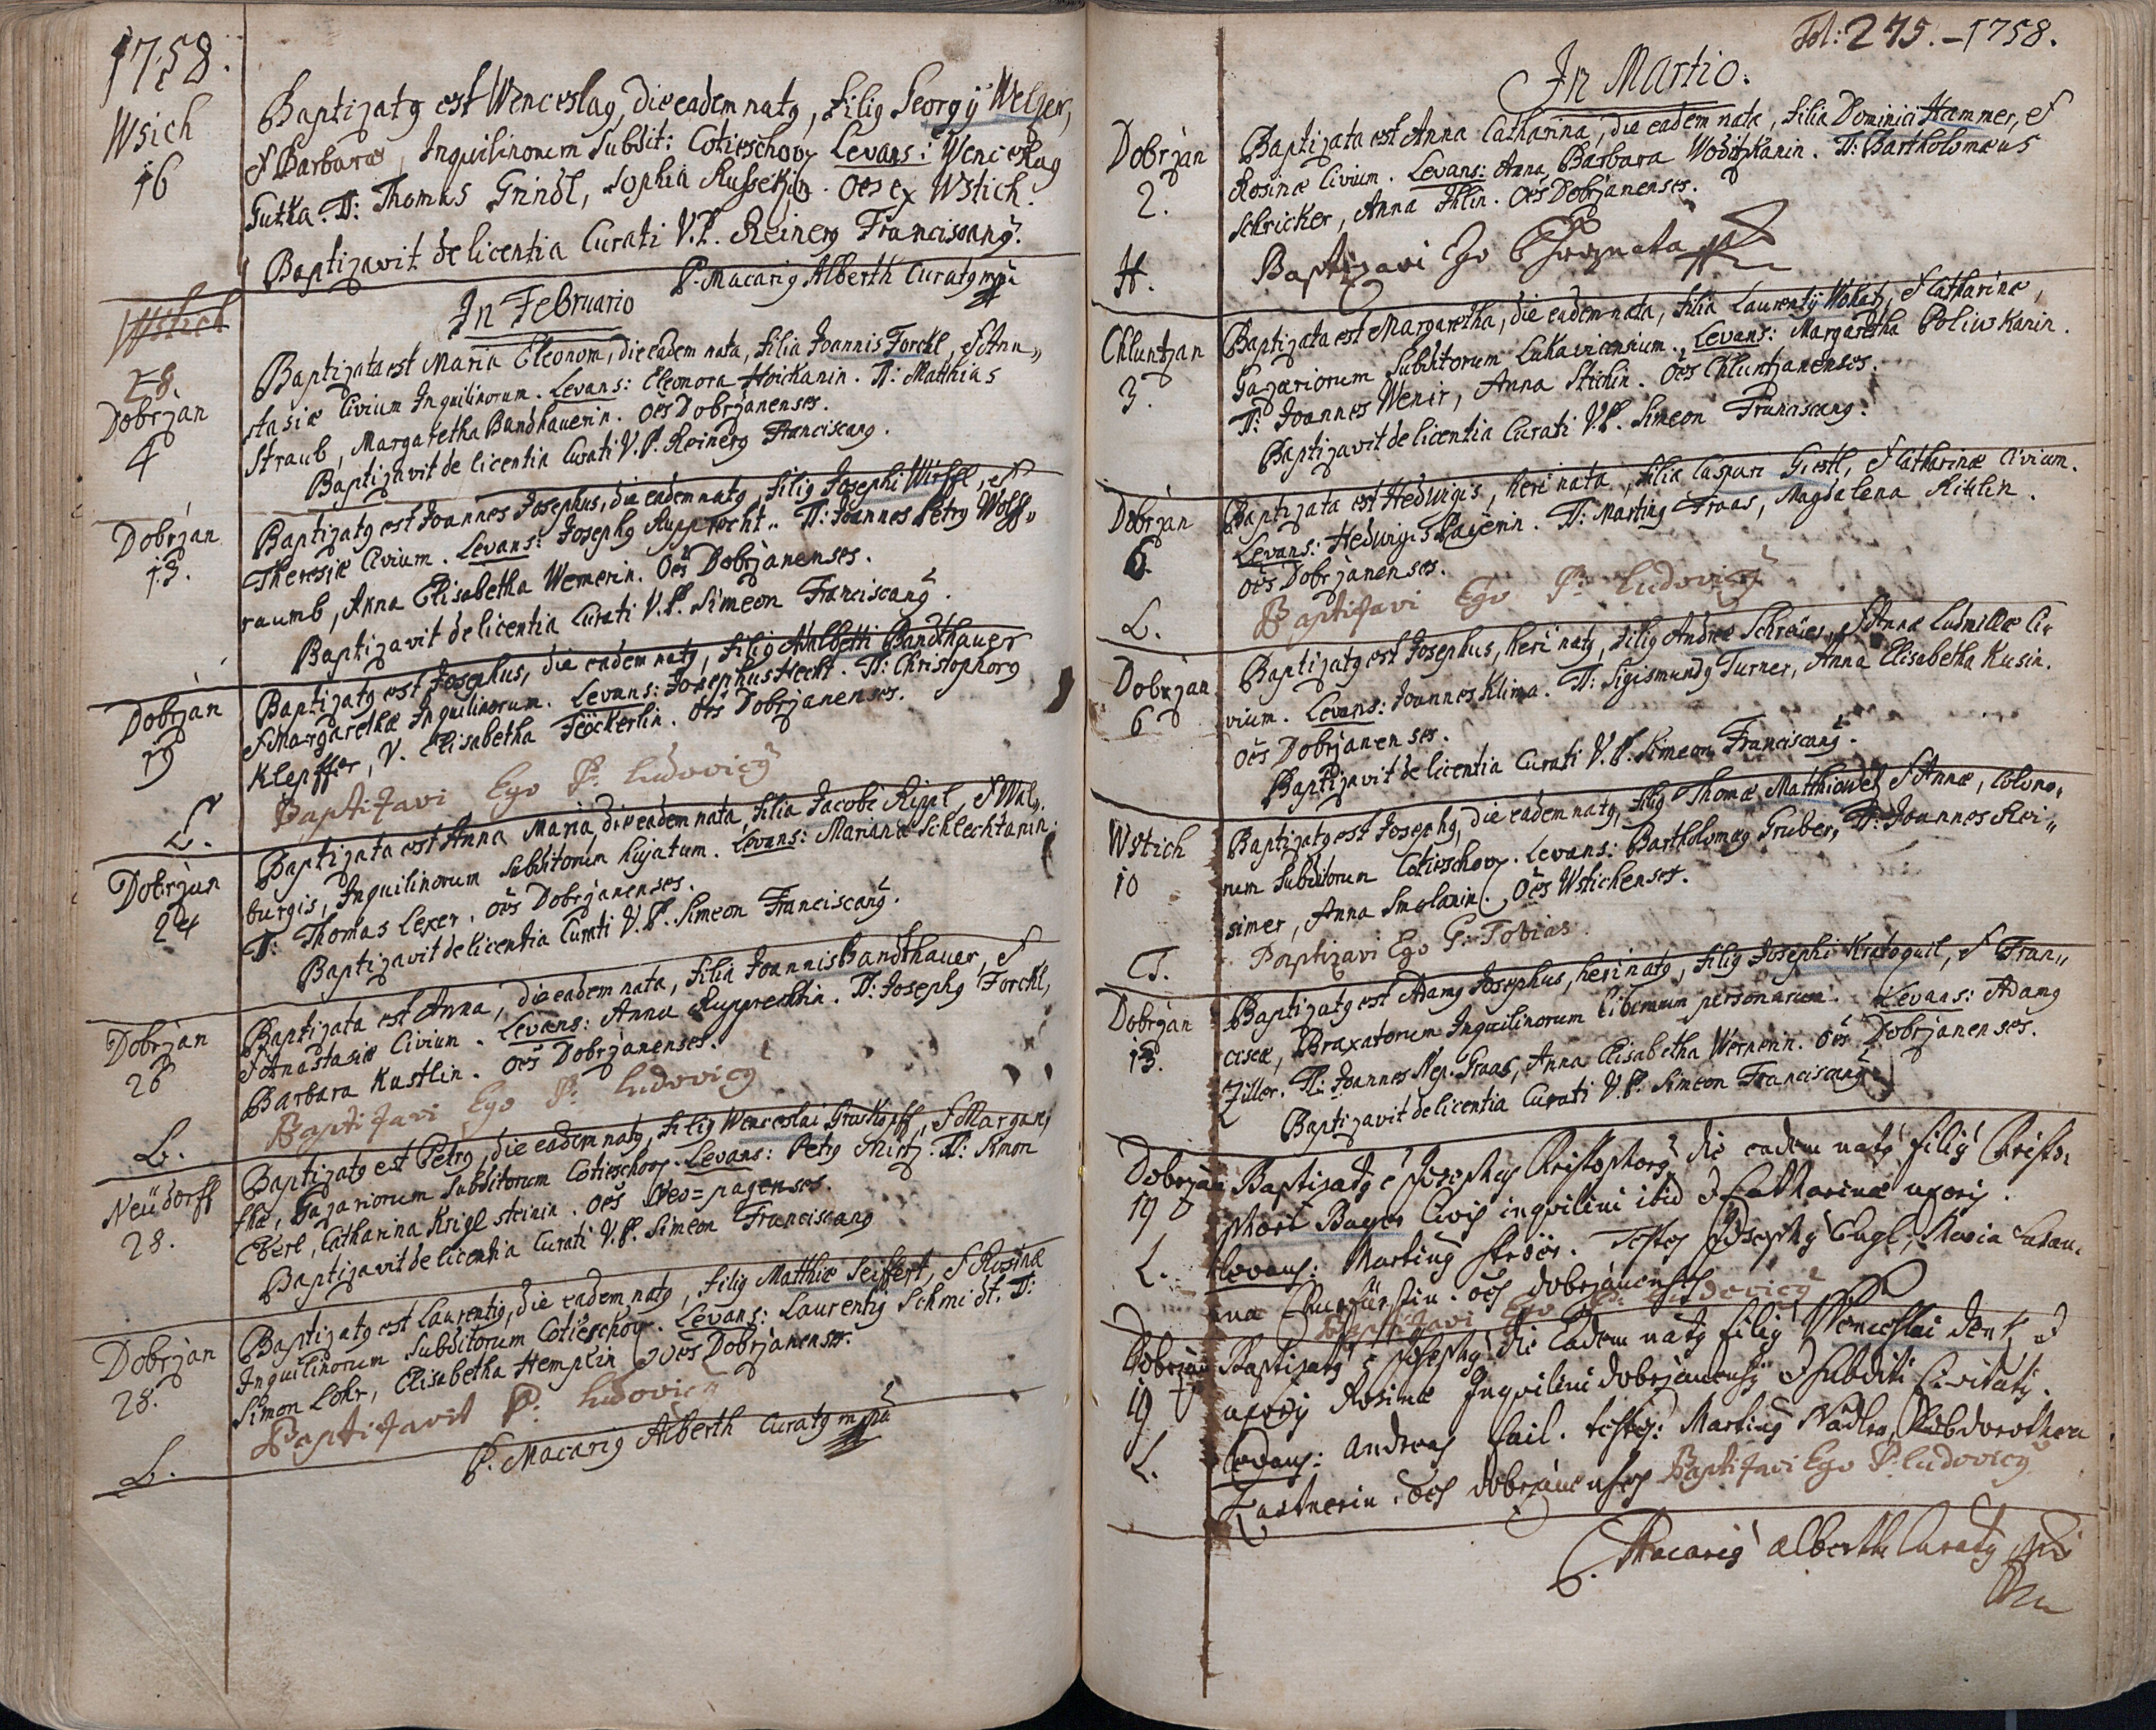 1758.
Wsich
16
Baptizatg est Wenceslag, die eadem natg, filig Georgÿ Welzer,
& Barbaræ, Inquilinorum Subdit: Cotieschovy Levans: Wenceslag
Gutka. TT: Thomas Grindl, Sophia Russekin. Oēs ex Wstich.
Baptizavit de licentia Curati V.P. Reinerg Franciscang.
P. Macarig Alberth Curatg mpia
In Februario
Wstich
28.
Dobrzan
4
Baptizata est Maria Eleonora, die eadem nata, filia Joannis Forckl, & Ana„
stasiæ Civium Inquilinorum. Levans: Eleonora Hoikanin. TT: Matthias
Straub, Margaretha Bandhauerin. Oēs Dobrzanenses.
Baptizavit de licentia Curati V.P. Reinerg Franciscang.
Dobrzan
13.
Baptizatg est Joannes Josephus, die eadem natg, filig Josephi Wirffl, &
Theresiæ Civium. Levans: Josephg Rupprecht.. TT: Joannes Petrg Wolff„
raumb, Anna Elisabetha Wernerin. Oēs Dobrzanenses.
Baptizavit de licentia Curati V.P. Simeon Franciscang.
Dobrzan
19
Baptizatg est Josephus, die eadem natg, filig Adalberti Bandthauer
& Margarethæ Inquilinorum. Levans: Josephus Hecht. TT: Christophorg
Klepffer, V. Elisabetha Flöckerlin. Oēs Dobrzanenses.
Baptizavi Ego P. Ludovicg
L.
Dobrzan
24
Baptizata est Anna Maria, die eadem nata, filia Jacobi Rippl, & Wal„
burgis, Inquilinorum Subditorum hujatum. Levans: Mariana Schlechtanin.
TT: Thomas Lexer. Oēs Dobrzanenses.
Baptizavit de licentia Curati V.P. Simeon Franciscang.
Dobrzan
26
Baptizata est Anna, die eadem nata, filia Joannis Bandthauer, &
& Anastasiæ Civium. Levans: Anna Rupprechtin. TT: Josephg Forckl,
Barbara Kustlin. Oēs Dobrzanenses.
Baptizavi Ego P. Ludovicg
L.
Neudorff
28.
Baptizatg est Petrg, die eadem natg, filig Wenceslai Graskopff, & Marga„
thæ, Gazariorum Subditorum Cotieschovy. Levans: Petrg Schirtz. TT: Simon
Eberl, Catharina Krigl steinin. Oēs Neo=pagenses.
Baptizavit de licentia Curati V.P. Simeon Franciscang
Dobrzan
28.
Baptizatg est Laurentig, die eadem natg, filig Matthiæ Seiffert, & Rosinæ
Inquilinorum Subditorum Cotieschov. Levans: Laurentig Schmidt. TT:
Simon Lohr, Elisabetha Hemplin Oēs Dobrzanenses.
Baptizavit P. Ludovicg
L.
P. Macarig Alberth Curatg mpia
Fol: 275. – 1758.
In Martio.
Dobrzan
2.
Baptizata est Anna Catharina, die eadem nata, filia Dominici Hammer, &
Rosinæ Civium. Levans: Anna Barbara Woditzkanin. TT: Bartholomæus
Schricker, Anna Ihlin. Oēs Dobrzanenses.
Baptizavi Ego
H.
Chluntzan
3.
Baptizata est Margaretha, die eadem nata, filia Laurentÿ Wokatz, & Catharinæ,
Gazariorum Subditorum Lukavicensium. Levans: Margaretha Poliwkanin.
TT: Joannes Wenir, Anna Stichin. Oēs Chluntzanenses.
Baptizavit de licentia Curati V.P. Simeon Franciscang.
Dobrzan
6.
Baptizata est Hedwigis, heri nata, filia Caspari Griestl, & Catharinæ Civium.
Levans: Hedwigis Payerin. TT: Marting Fraas, Magdalena Rittlin.
Oēs Dobrzanenses.
Baptizavi Ego P. Ludovicg
L.
Dobrzan
6
Baptizatg est Josephus, heri natg, filig Andreæ Schreier, & Annæ Ludmillæ Ci„
vium. Levans: Joannes Klima. TT: Sigismundg Turner, Anna Elisabetha Kusin.
Oēs Dobrzanenses.
Baptizavit de licentia Curati V.P. Simeon Franciscang.
Wstich
10
Baptizatg est Josephg, die eadem natg, filig Thomæ Matthiowetz & Annæ, Colono„
rum Subditorum Cotieschovy. Levans: Bartholomæg Gruber, TT: Joannes Rei„
simer, Anna Smolanin. Oēs Wstichenses.
Baptizavi Ego P. Tobias.
T.
Dobrzan
13.
Baptizatg est Adamg Josephus, heri natg, filig Josephi Kratoguil, & Fran„
ciscæ, Braxatorum Inquilinorum liberarum personarum. Levans: Adamg
Ziller. TT: Joannes Nep. Graas, Anna Elisabetha Wernerin. Oēs Dobrzanenses.
Baptizavit de licentia Curati V.P. Simeon Franciscang
Dobrzan
19
L.
Baptizatg ē Josephg Christophorg die eadem natg filig Christo„
phori Bayer Civis inquilini ibid & Catharinæ uxoris.
Levans: Marting Testes Josephg Engl, Maria Susan„
na oēs dobrzanenses
Baptizavi Ego P. Ludovicg
Dobrzan
19
L.
Baptizatg ē Josephg die eadem natg filig Wenceslai
uxoris Rosinæ Inquilini dobrzanensis & subditi Civitatis.
Levans: Andreas Testes: Marting Nadler, Dorothea
oēs dobrzanenses Baptizavi Ego P. Ludovicg
P. Macarig Alberth Curatg